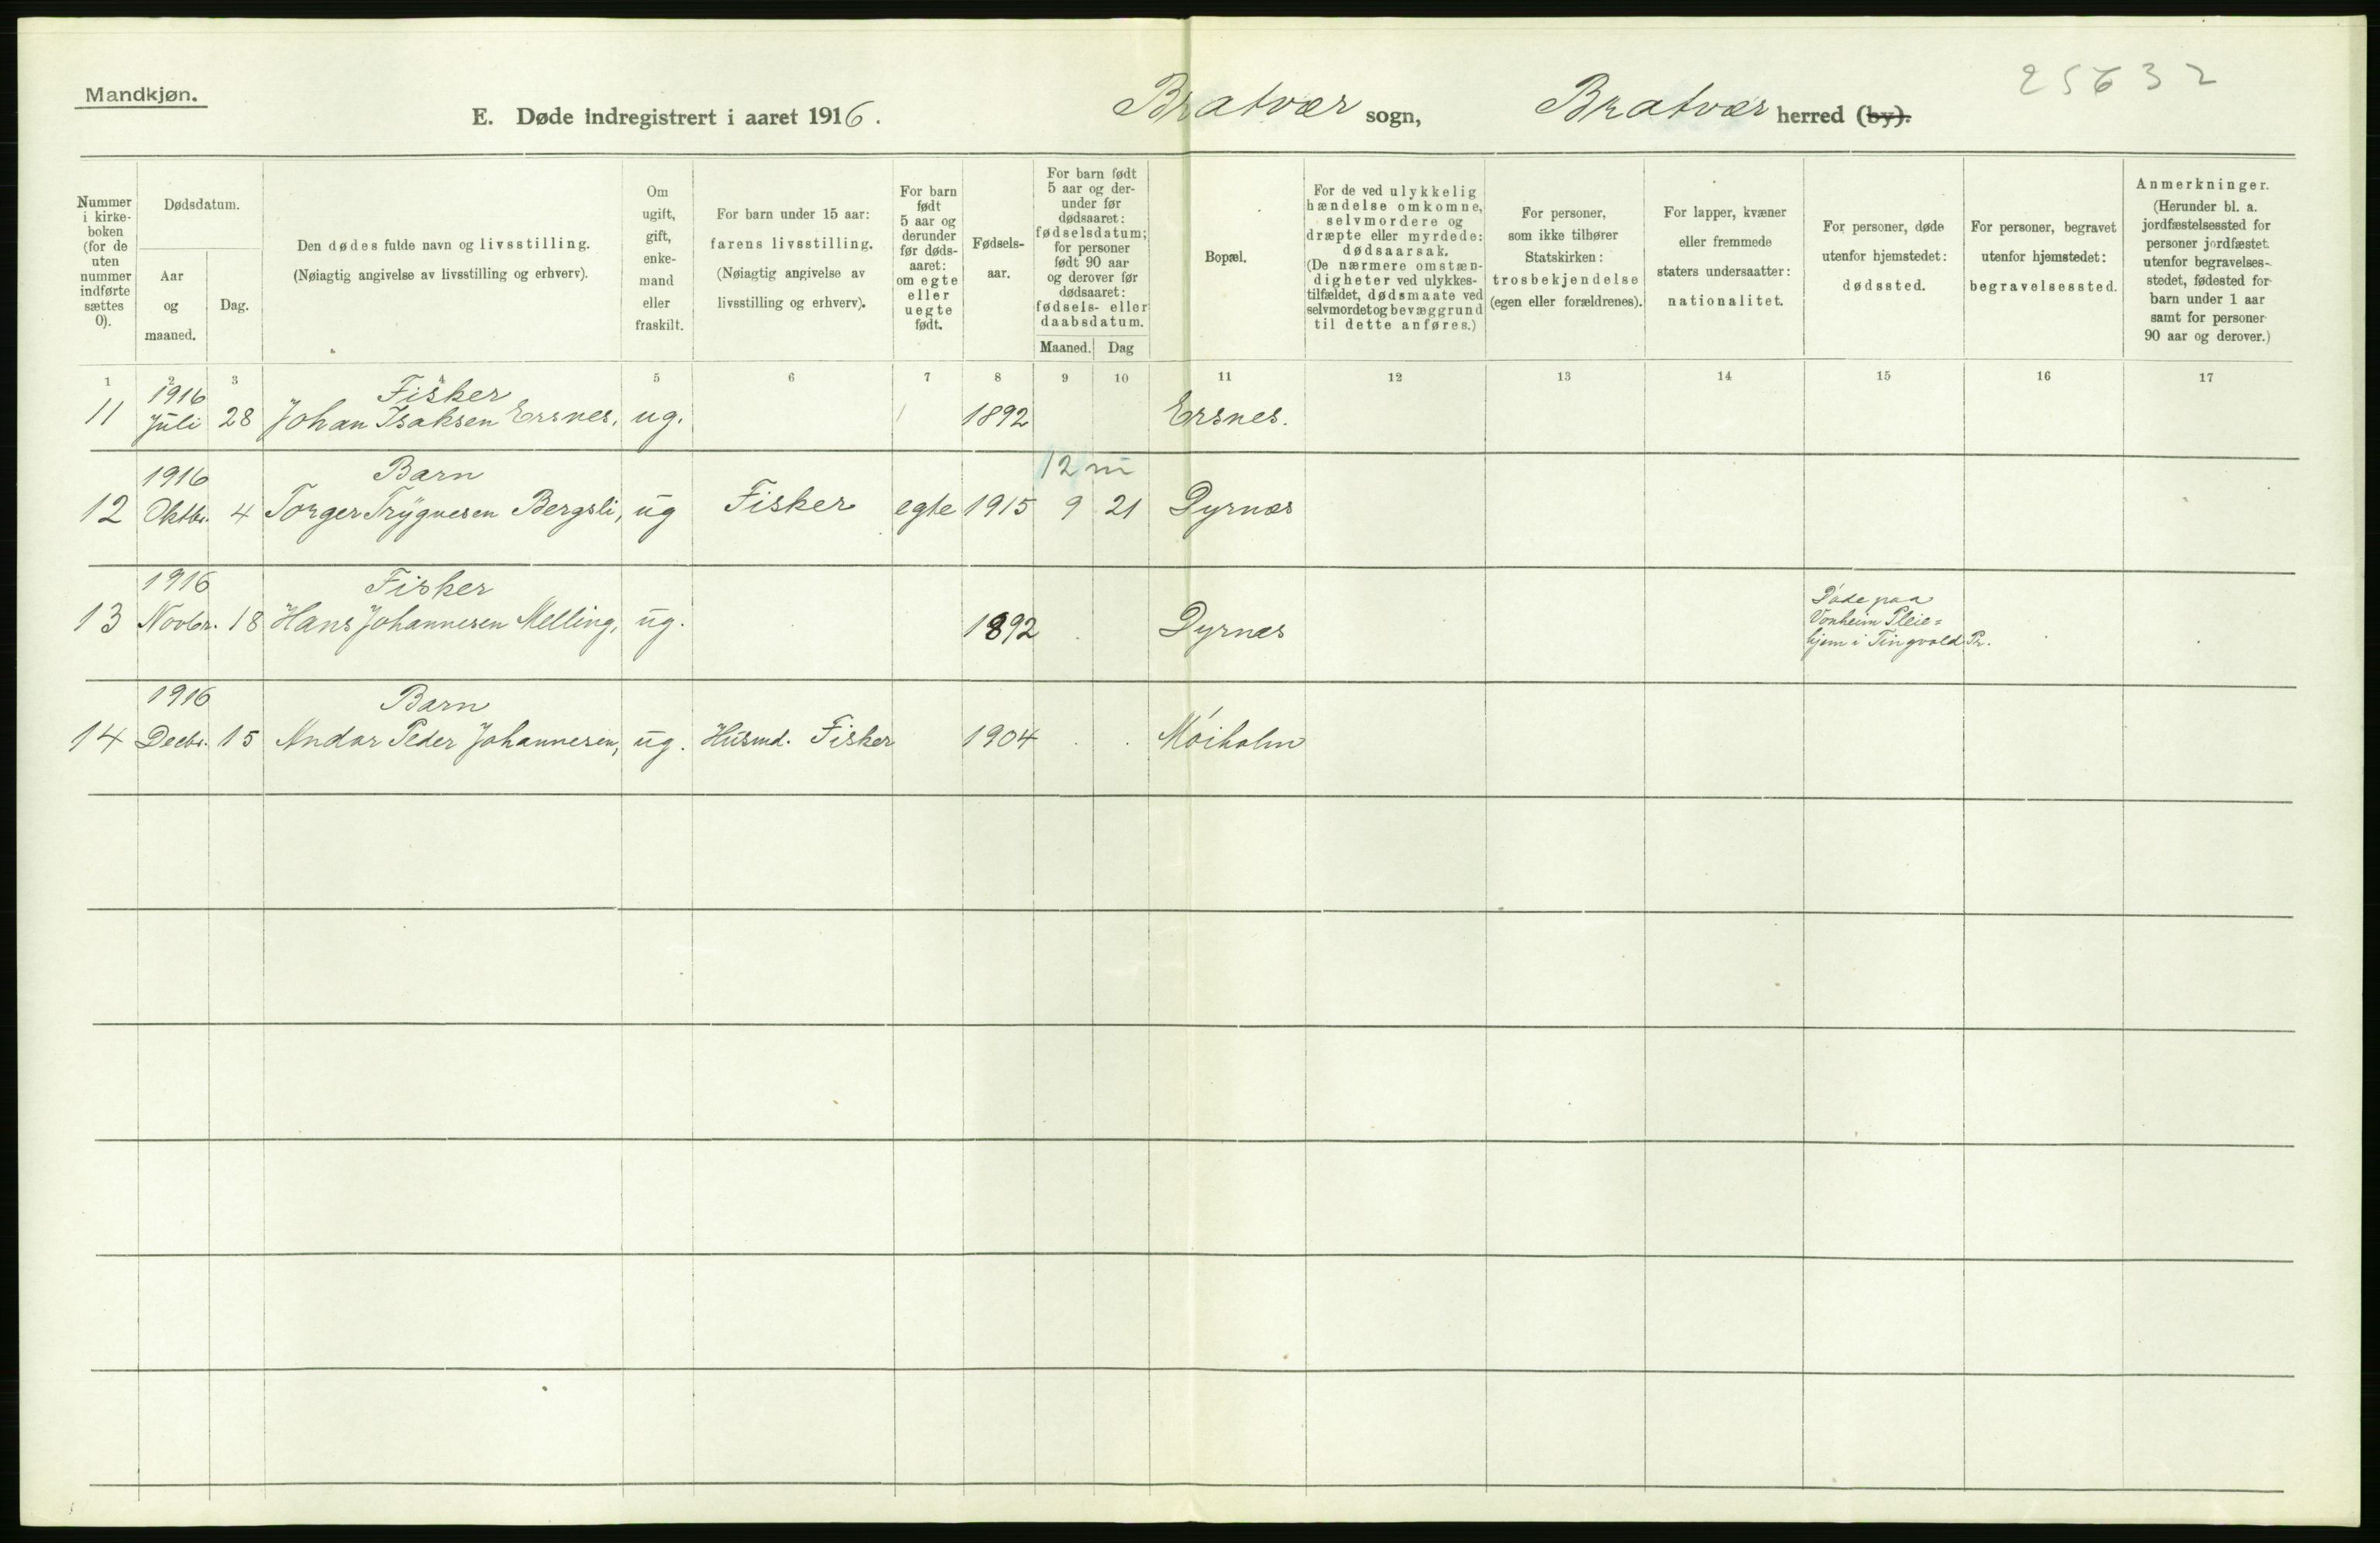 Mandkjøn.
25632
E. Døde indregistrert i aaret 1916. Bratvær sogn, Bratvær herred (by).
Nummer i kirke-boken (for de uten nummer indførte sættes 0).
Dødsdatum.
Aar og maaned.
Dag.
Den dødes fulde navn og livsstilling.
(Nøiagtig angivelse av livsstilling og erhverv).
Om ugift, gift, enke-mand eller fraskilt.
For barn under 15 aar:
farens livsstilling.
(Nøiagtig angivelse av livsstilling og erhverv).
For barn født 5 aar og derunder før døds-aaret: om egte eller uegte født.
Fødsels-aar.
For barn født 5 aar og der-under før dødsaaret: fødselsdatum; for personer født 90 aar og derover før dødsaaret: fødsels- eller daabsdatum.
Maaned. Dag
Bopæl.
For de ved ulykkelig hændelse omkomne, selvmordere og dræpte eller myrdede: dødsaarsak. (De nærmere omstæn-digheter ved ulykkes-tilfældet, dødsmaate ved selvmordet og bevæggrund til dette anføres.)
For personer, som ikke tilhører Statskirken: trosbekjendelse (egen eller forældrenes).
For lapper, kvæner eller fremmede staters undersaatter: nationalitet.
For personer, døde utenfor hjemstedet: dødssted.
For personer, begravet utenfor hjemstedet: begravelsessted.
Anmerkninger. (Herunder bl. a. jordfæstelsessted for personer jordfæstet utenfor begravelses-stedet, fødested for barn under 1 aar samt for personer 90 aar og derover.)
1 2 3 4 5 6 7 8 9 10 11 12 13 14 15 16 17
1916 Fisker
11 Juli 28 Johan Isaksen Ersnes, ug. 1892 Ersnes.
1916 Barn 12 m
12 Oktbr. 4 Torger Trygvesen Bergsli, ug Fisker egte 1915 9 21 Dyrnæs
1916 Fisker
13 Novbr. 18 Hans Johannesen Melling, ug. 1892 Dyrnæs
Døde paa
Vonheim Pleie=
hjem i Tingvold Pr.
1916 Barn
14 Decbr. 15 Andor Peder Johannesen, ug. Husmd. Fisker 1904 Móiholm